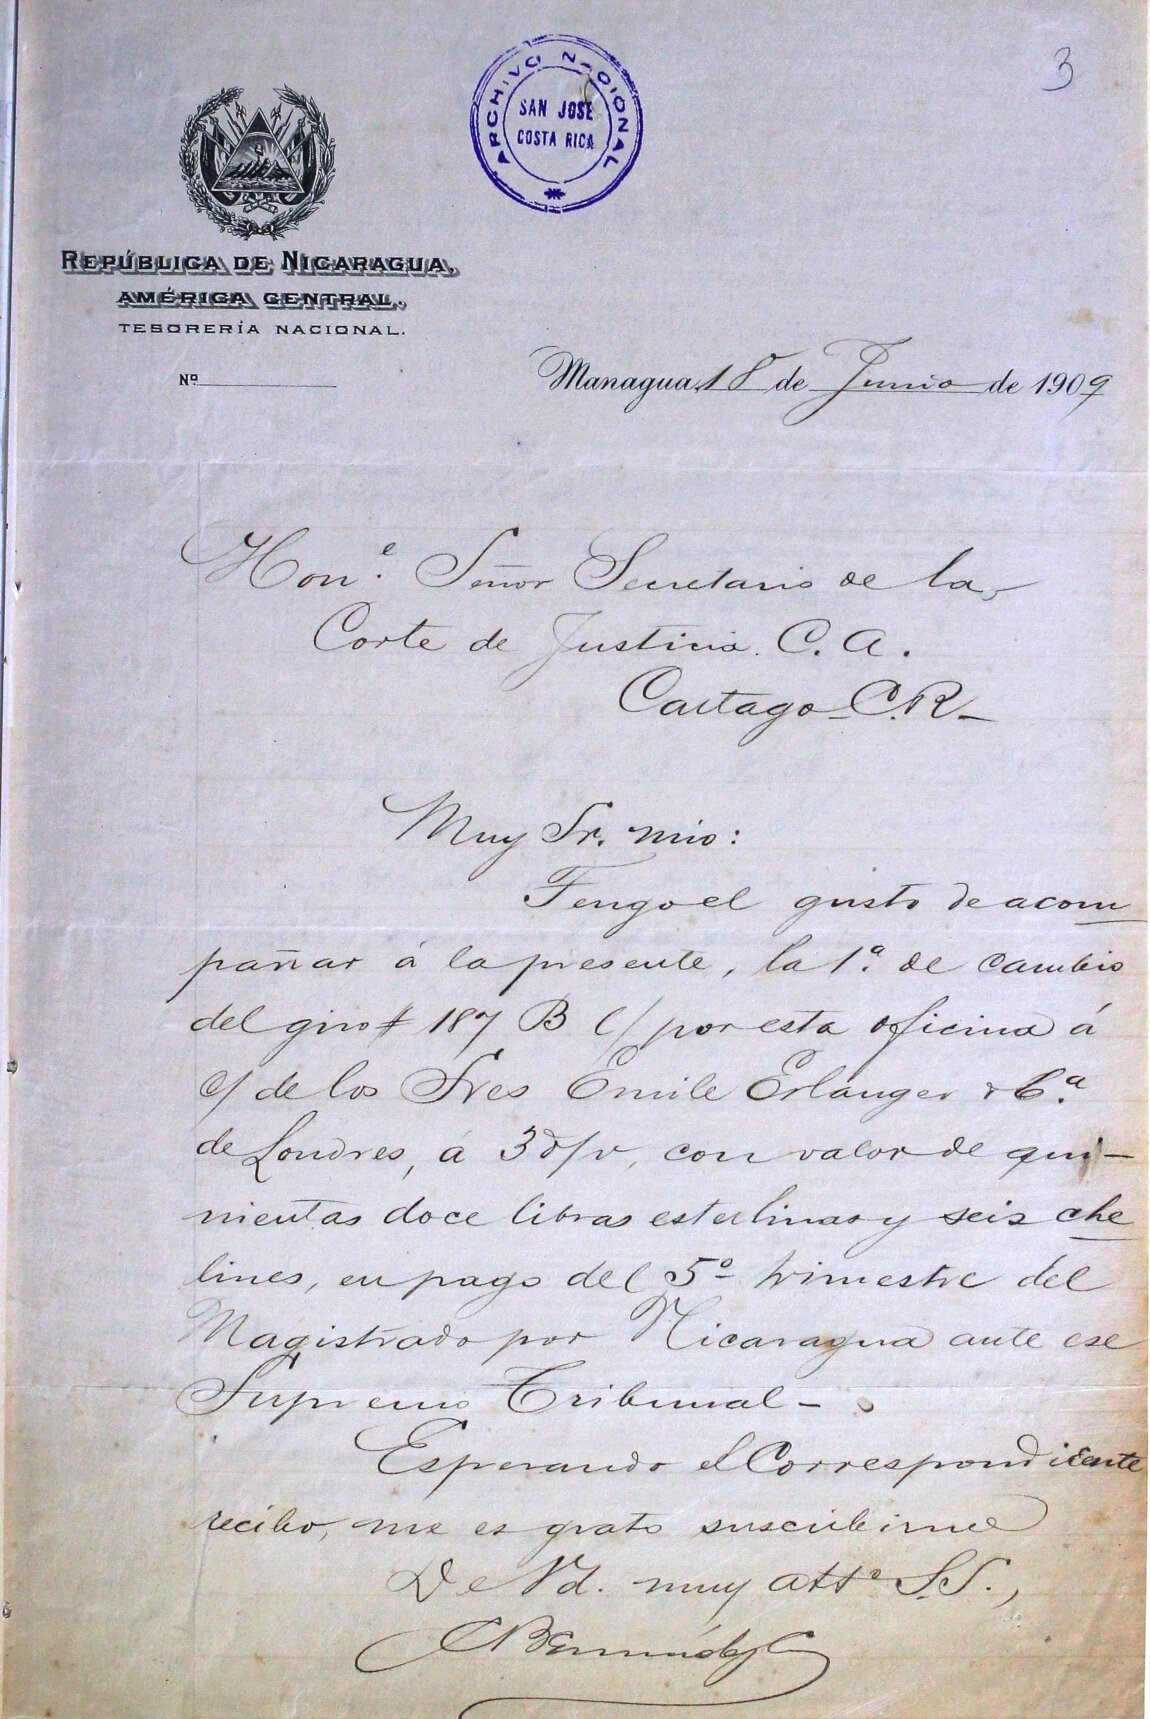 3
ARCHIVO NACIONAL
SAN JOSE
COSTA RICA
REPÚBLICA DE NICARAGUA,
AMÉRICA CENTRAL.
TESORERÍA NACIONAL.
Nº
Managua, 18 de Junio de 1909
Hon.e Señor Secretario de la
Corte de Justicia. C. A.
Cartago C.R-
Muy Sr. mio:
Tengo el gusto de acom
pañar á la presente, la 1ª. de cambio
del giro # 187 B c/ por esta oficina á
c/ de los Sres Emile Erlanger & Cª.
de Londres, á 3 d/v, con valor de qui-
nientas doce libras esterlinas y seis che
lines, en pago del 5º trimestre del
Magistrado por Nicaragua ante ese
Supremo Tribunal -.
Esperando el Correspondiente
recibo, me es grato suscribirme
De Vd. muy attº S.S.,